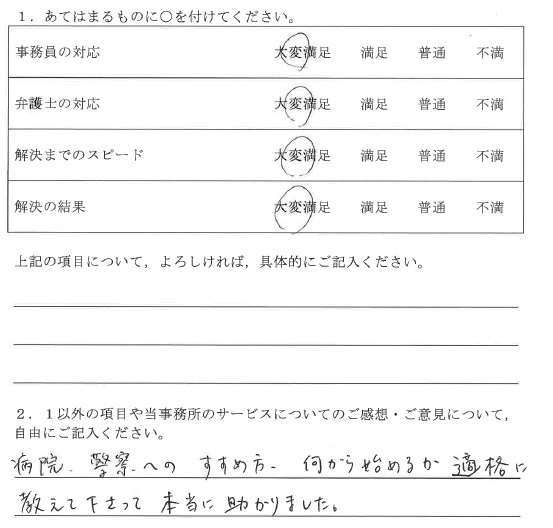 １．あてはまるものに○を付けてください。
事務員の対応 大変満足 満足 普通 不満
弁護士の対応 大変満足 満足 普通 不満
解決までのスピード 大変満足 満足 普通 不満
解決の結果 大変満足 満足 普通 不満
上記の項目について，よろしければ，具体的にご記入ください。
２．１以外の項目や当事務所のサービスについてのご感想・ご意見について，
自由にご記入ください。
病院、警察への すすめ方、何から始めるか 適格に
教えて下さって 本当に助かりました。